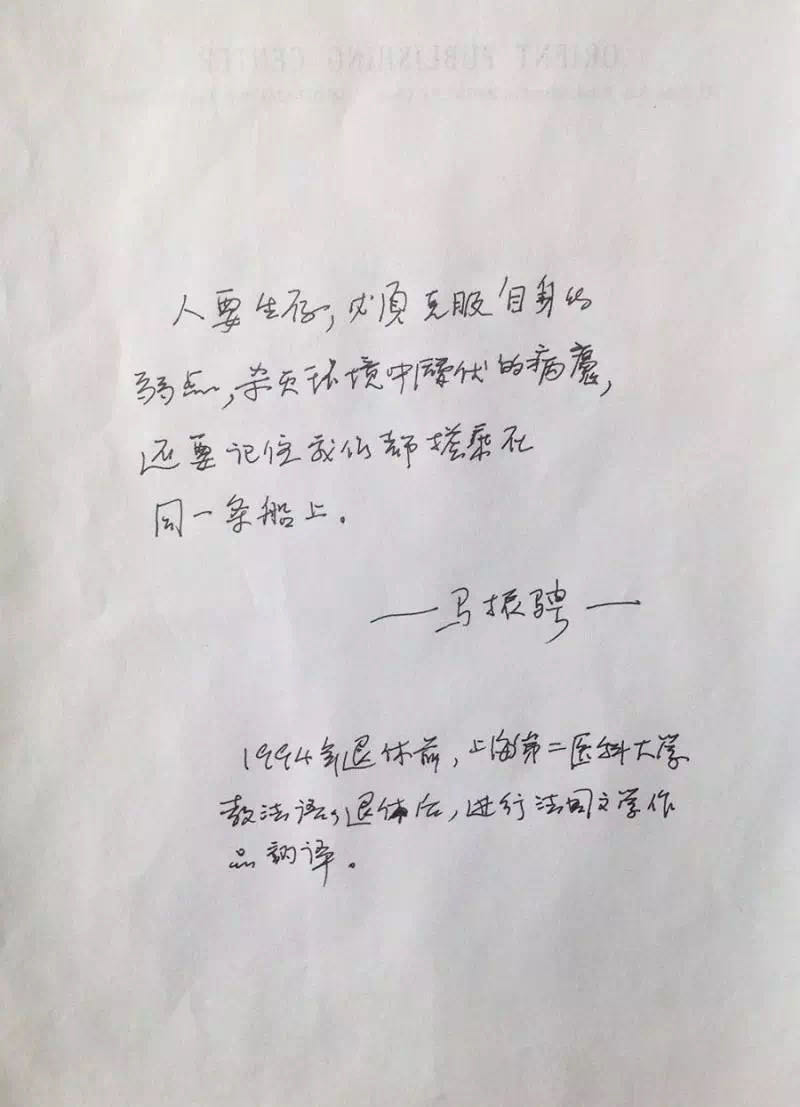 ORIENT PUBLISHING CENTER
人要生存，必须克服自身的
弱点，杀灭环境中潜伏的病魔，
还要记住我们都搭乘在
同一条船上。
——马振骋——
1994年退休前，上海第二医科大学
教法语，退休后，进行法国文学作
品翻译。